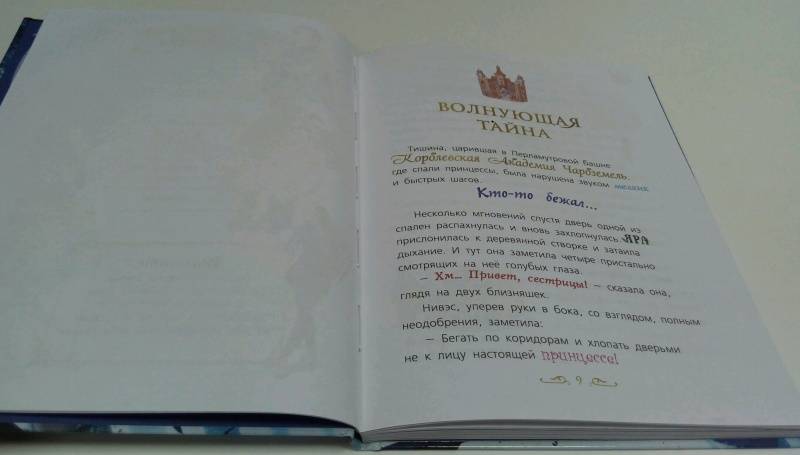 ВОЛНУЮЩАЯ
ТАЙНА
Тишина, царившая в Перламутровой Башне
Королевская Академия Чароземель,
где спали принцессы, была нарушена звуком мелких
и быстрых шагов.
Кто-то бежал...
Несколько мгновений спустя дверь одной из
спален распахнулась и вновь захлопнулась. ЯРА
прислонилась к деревянной створке и затаила
дыхание. И тут она заметила четыре пристально
смотрящих на неё голубых глаза.
— Хм... Привет, сестрицы! — сказала она,
глядя на двух близняшек.
Нивэс, уперев руки в бока, со взглядом, полным
неодобрения, заметила:
— Бегать по коридорам и хлопать дверьми
не к лицу настоящей принцессе!
9